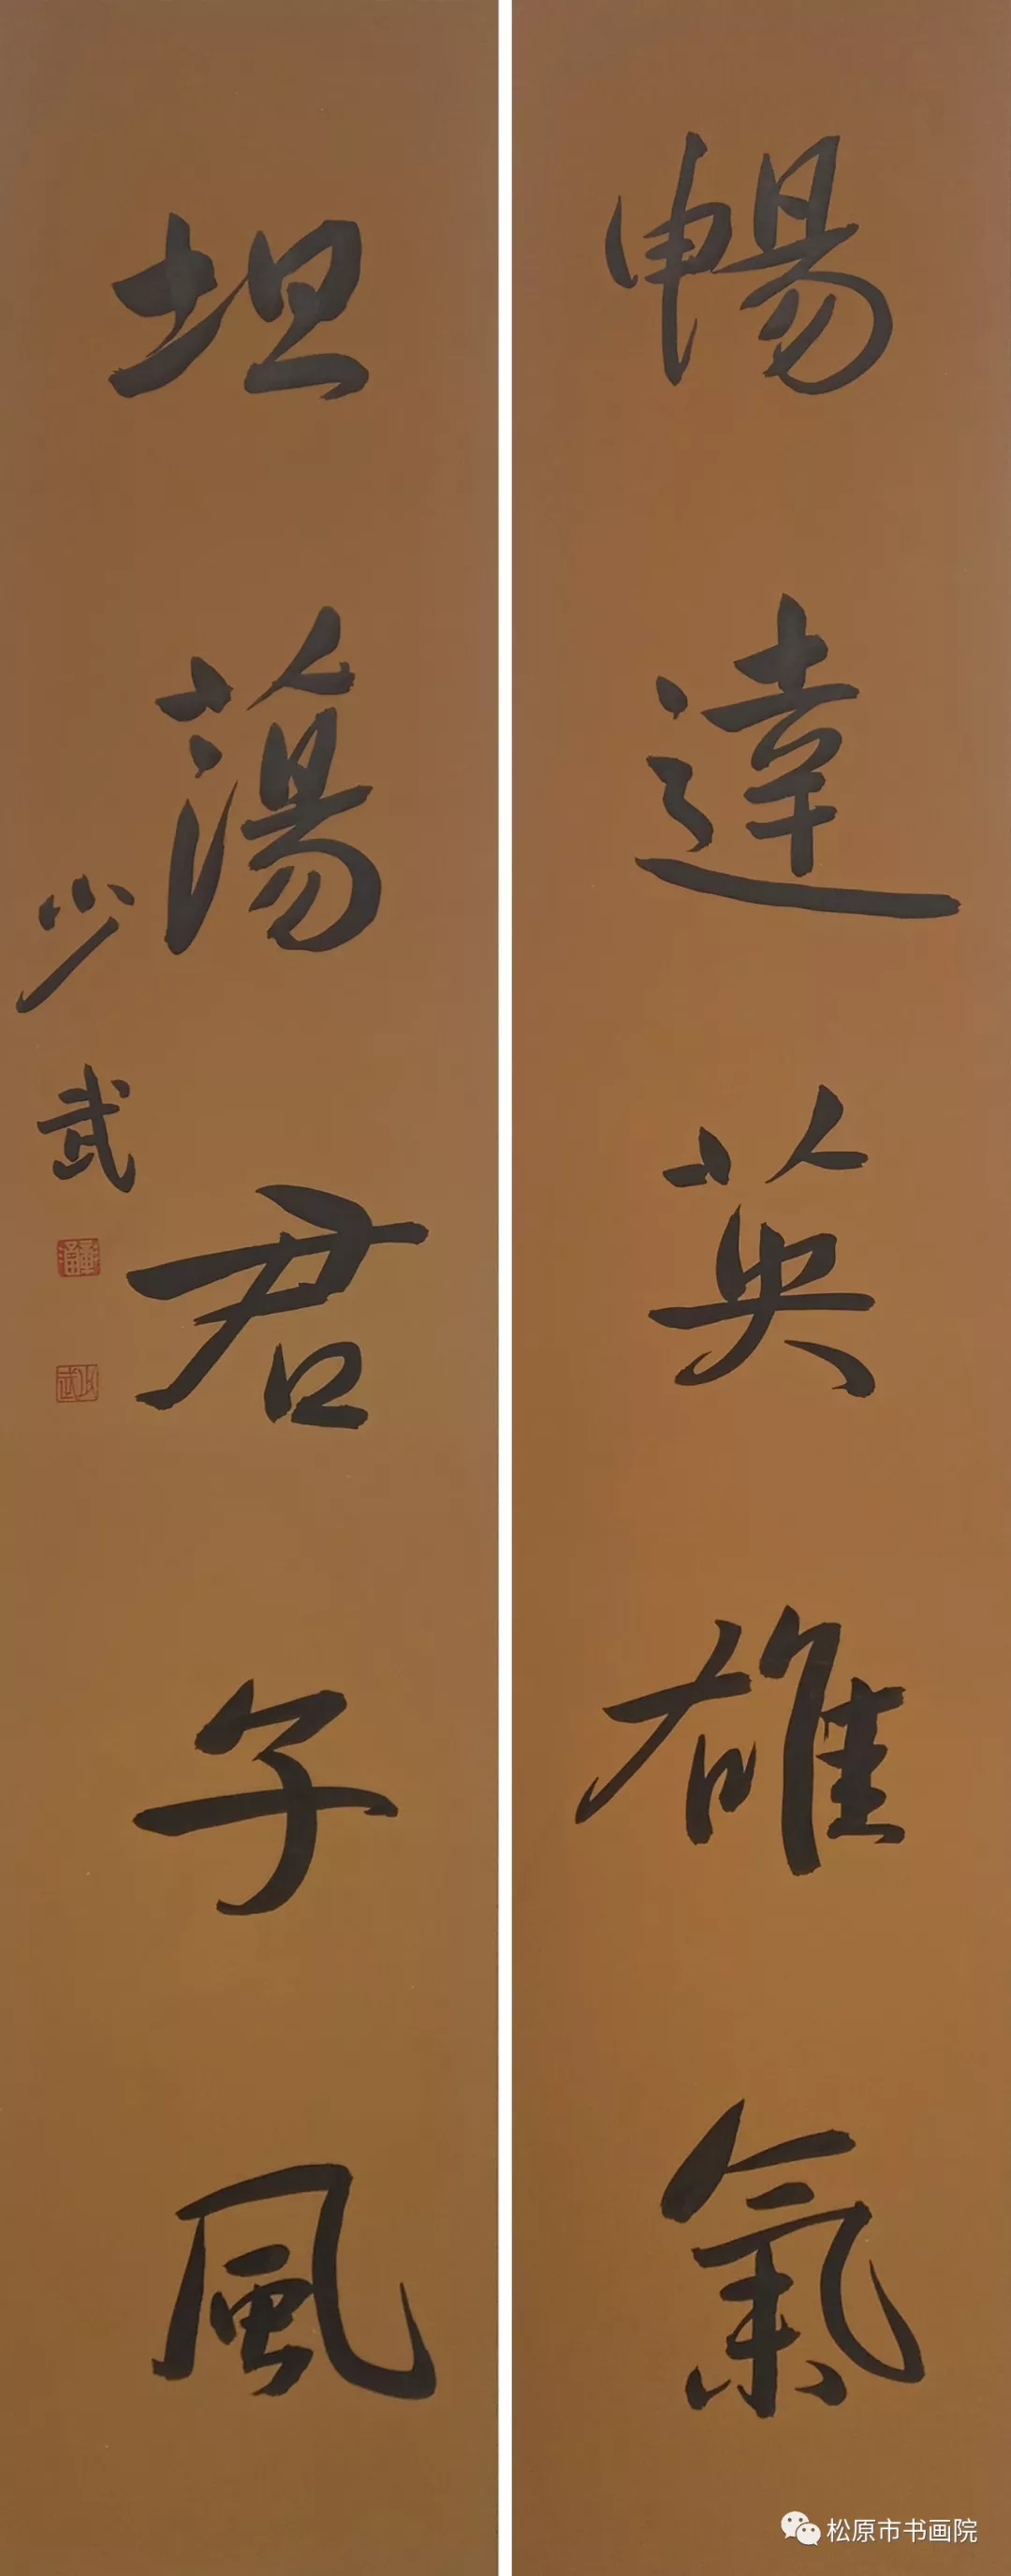 暢達英雄氣
坦蕩君子風
少武
松原市书画院